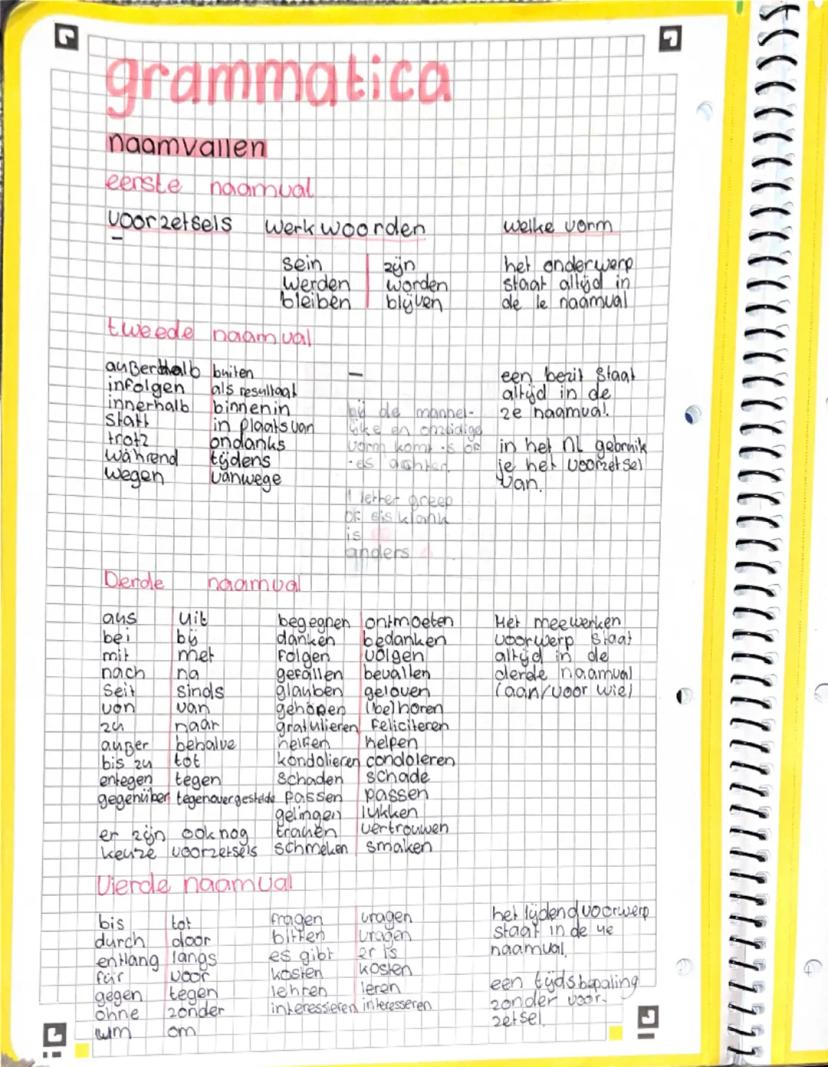 grammatica
naamvallen
eerste naamval
voorzetsels werkwoorden welke vorm
-
sein zijn het onderwerp
werden worden staat altijd in
bleiben blijven de 1e naamval
tweede naamval
außerhalb buiten - een bezit staat
infolgen als resultaat altijd in de
innerhalb binnenin bij de mannel- 2e naamval.
statt in plaats van ijke en onzijdige
trotz ondanks vorm komt -s of in het NL gebruik
während tijdens -es achter. je het voorzetsel
wegen vanwege van.
1 letter greep
of sis klank
is
anders
Derde naamval
aus uit begegnen ontmoeten Het meewerken
bei bij danken bedanken voorwerp staat
mit met folgen volgen altijd in de
nach na gefallen bevallen derde naamval
seit sinds glauben geloven (aan/voor wie)
von van gehören (be)horen
zu naar gratulieren feliciteren
außer behalve helfen helpen
bis zu tot kondolieren condoleren
entegen tegen schaden schade
gegenüber tegenovergestelde passen passen
gelingen lukken
er zijn ook nog trauen vertrouwen
keuze voorzetsels schmeken smaken
Vierde naamval
bis tot fragen vragen het lijdend voorwerp
durch door bitten vragen staat in de 4e
entlang langs es gibt er is naamval.
für voor kosten kosten
gegen tegen lehren leren een tijdsbepaling
ohne zonder interessieren interesseren zonder voor-
um om zetsel.